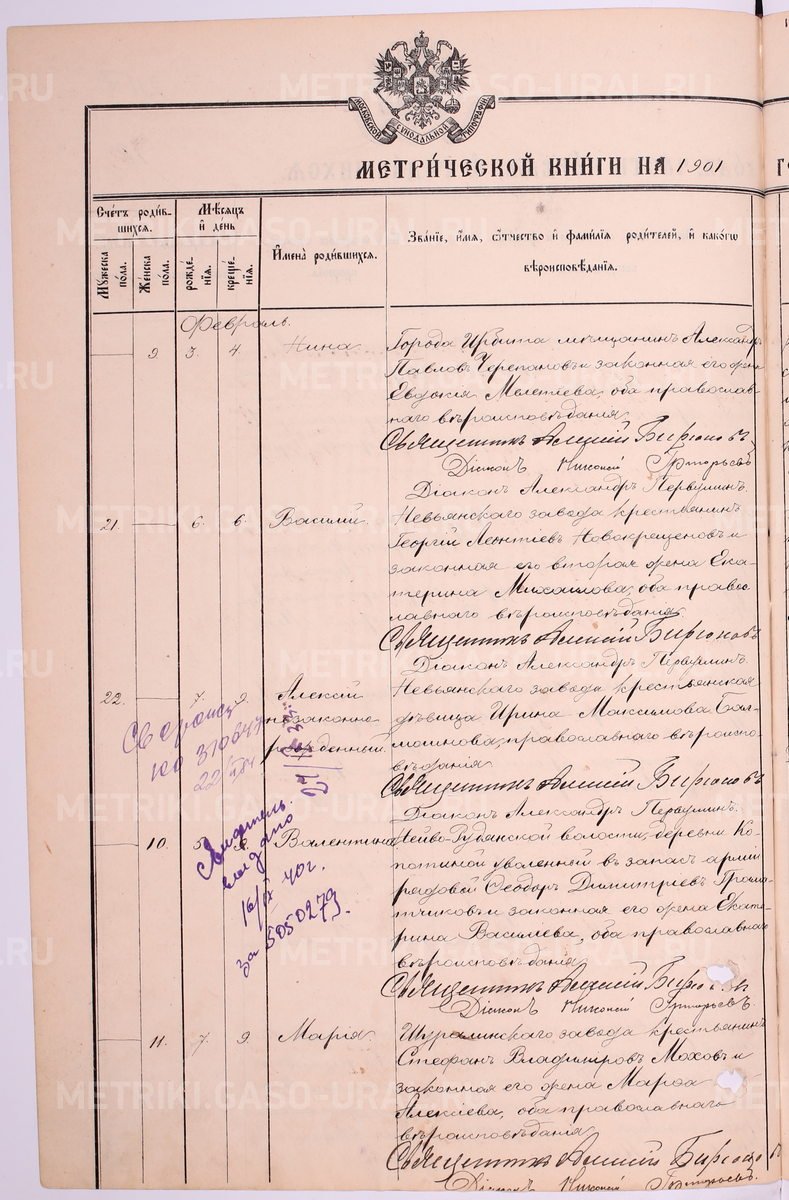 МОСКОВСКОЙ СѴНОДАЛЬНОЙ ТИПОГРАФІИ
МЕТРИ́ЧЕСКОЙ КНИ́ГИ НА 1901
Сче́тъ роди́в-
шихся.
Мѣ́сяцъ
и҆ де́нь
Му́жеска
по́ла.
Же́нска
по́ла.
рожде́-
нїѧ.
креще́-
нїѧ.
И҆мена̀ роди́вшихся.
Зва́нїе, и҆́мѧ, ѻ҆́тчество и҆ фами́лїѧ роди́телей, и҆ како́гѡ
вѣроисповѣ́данїѧ.
Февраль.
9. 3. 4. Нина Города Ирбита мѣщанинъ Александръ
Павловъ Черепановъ и законная его жена
Евдокія Мелетіева, оба православ-
наго вѣроисповѣданія
Священникъ Алексій Бирюковъ
Діаконъ Никоній Григорьевъ
Діаконъ Александръ Первушинъ.
21. 6. 6. Василій Невьянскаго завода крестьянинъ
Георгій Леонтіевъ Новокрещеновъ и
законная его вторая жена Ека-
терина Михаилова, оба право-
славнаго вѣроисповѣданія
Священникъ Алексій Бирюковъ
Діаконъ Александръ Первушинъ.
22. 7. 9. Алексій Невьянскаго завода крестьянская
незаконно- дѣвица Ирина Максимова
рожденный. православнаго вѣроиспо-
вѣданія
Священникъ Алексій Бирюковъ
Діаконъ Александръ Первушинъ.
10. 5. Валентина Нейво-Рудянской волости, деревни Ко-
потиной уволенный въ запасъ арміи
рядовой Ѳеодоръ Димитріевъ
и законная его жена Екате-
рина Василіева, оба православнаго
вѣроисповѣданія
Священникъ Алексій Бирюковъ
Діаконъ Никоній Григорьевъ.
за 5050279.
11. 7. 9. Марія Шуралинскаго завода крестьянинъ
Стефанъ Владиміровъ Моховъ и
законная его жена Марѳа
Алексіева, оба православнаго
вѣроисповѣданія
Священникъ Алексій Бирюковъ
Діаконъ Никоній Григорьевъ.
METRIKI.GASO-URAL.RU